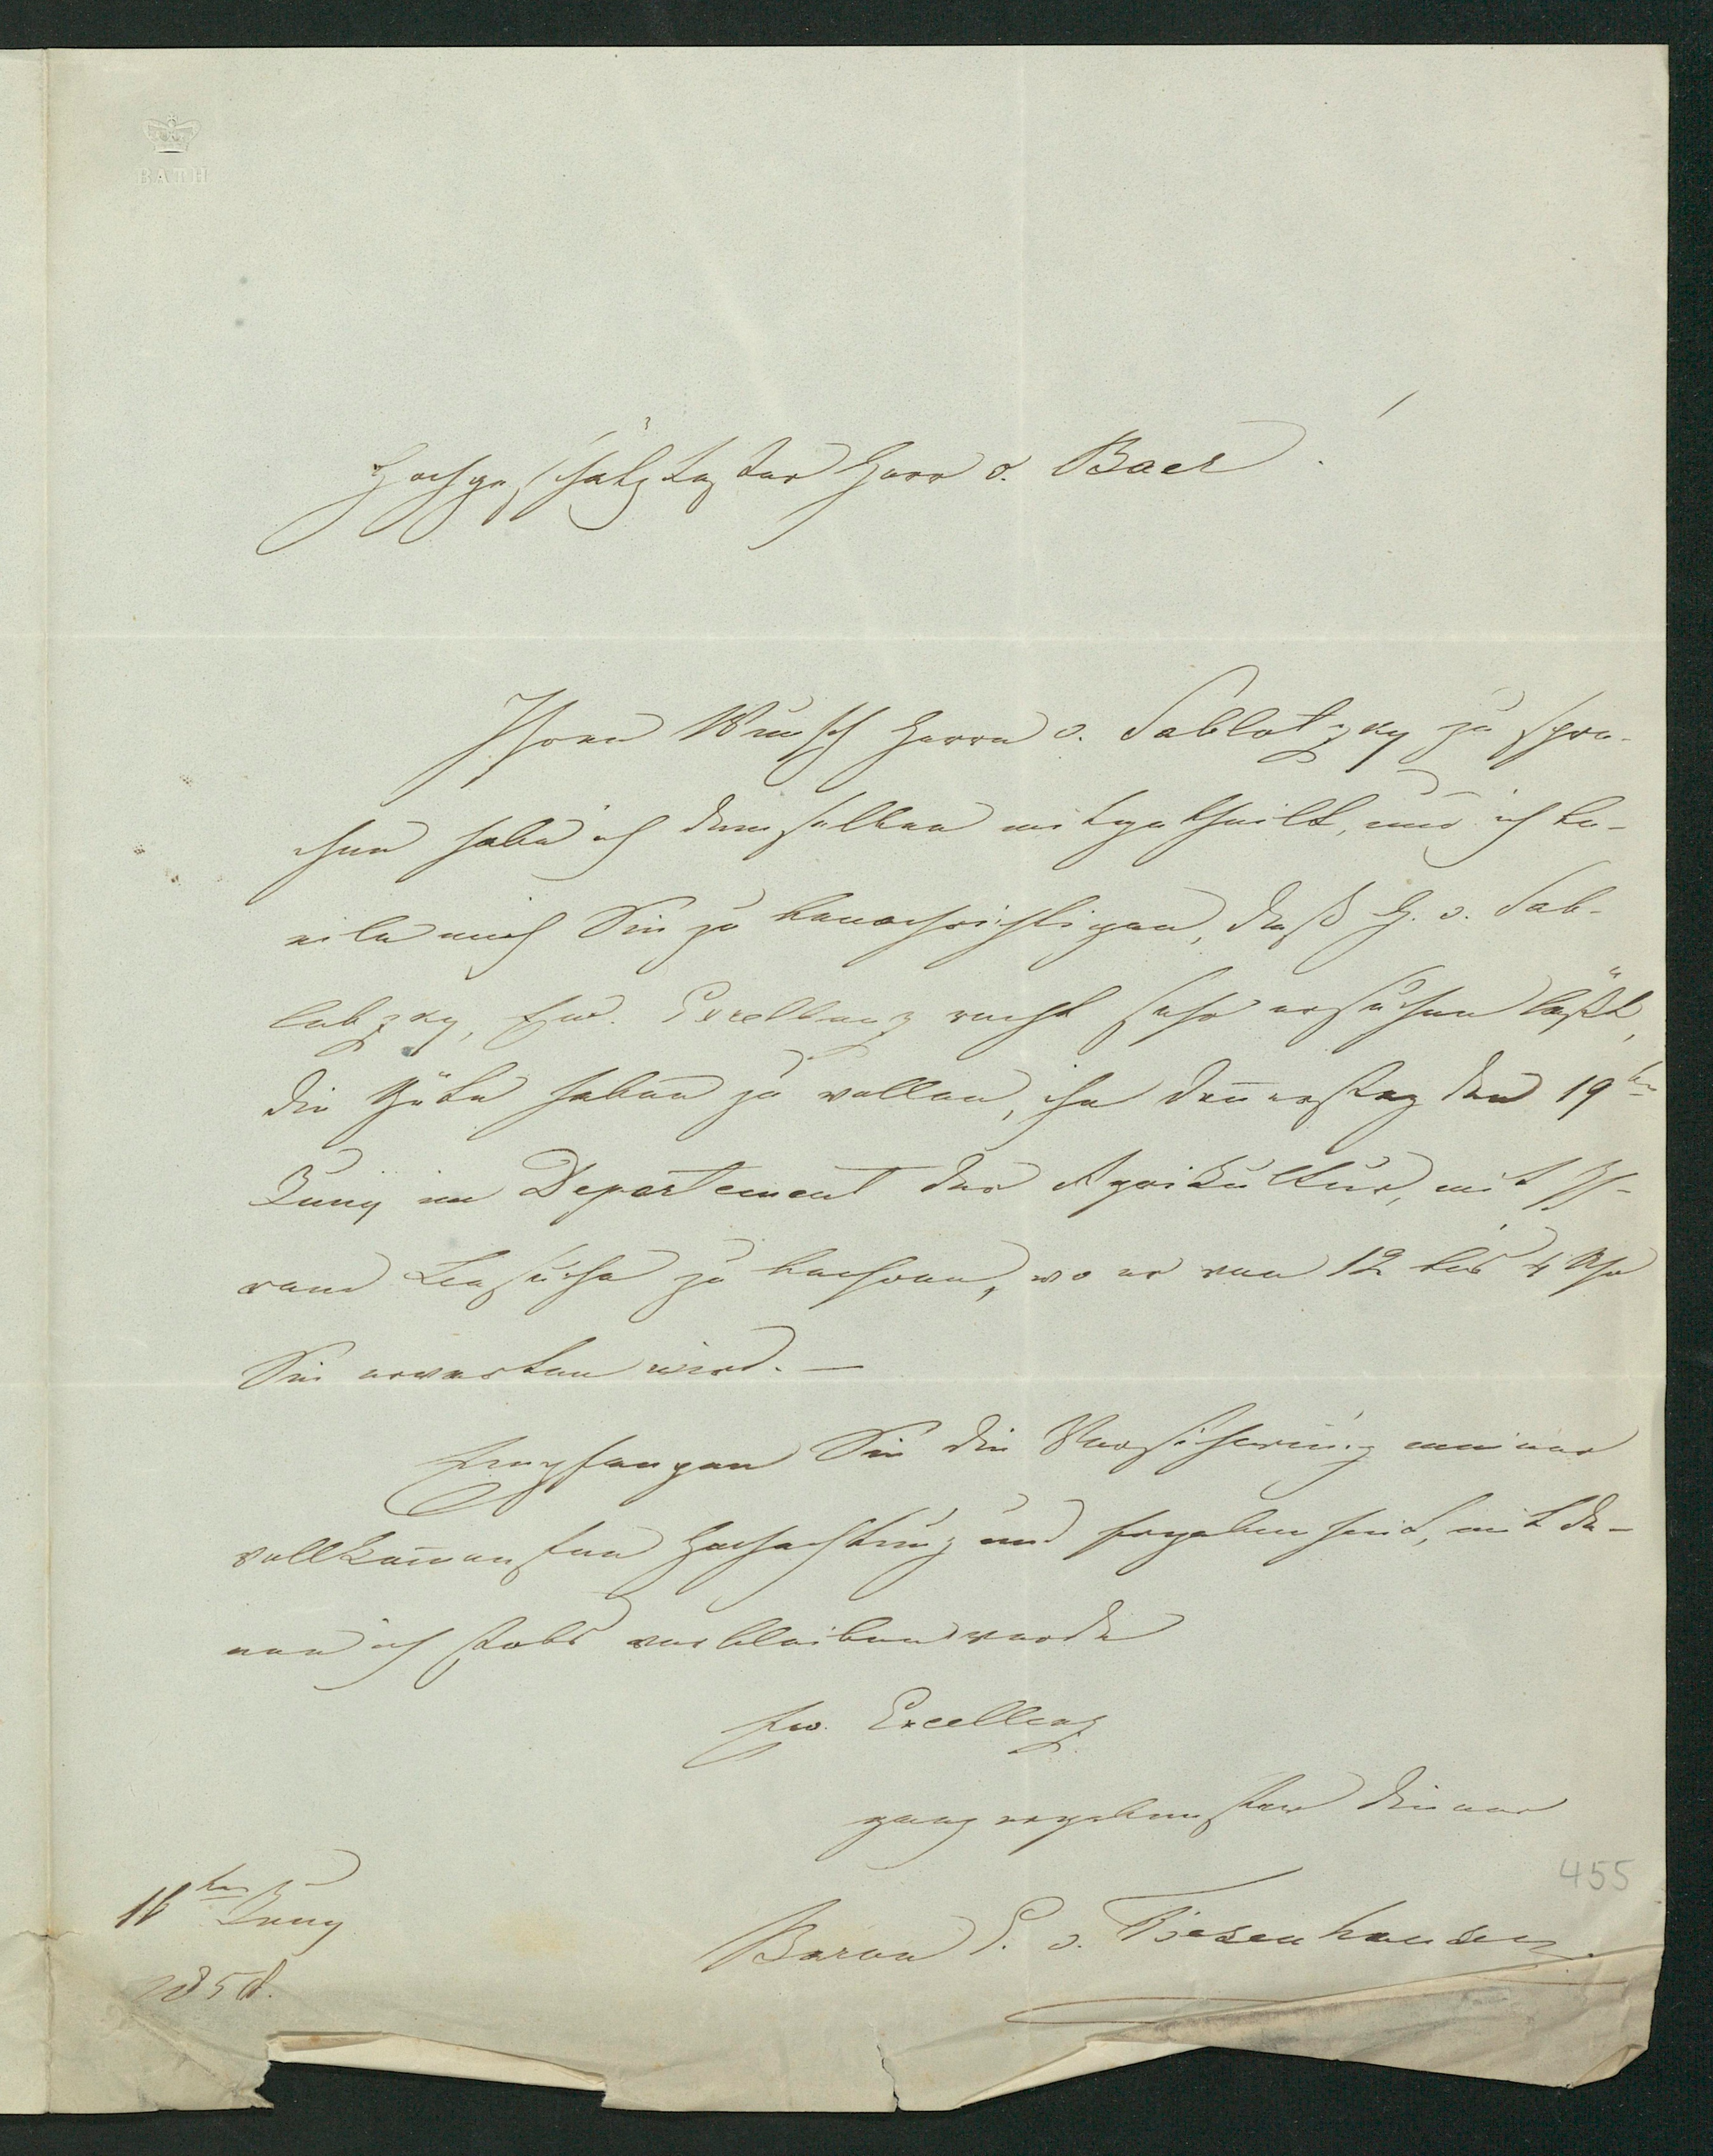 BATH
Hochgeschätztester Herr v. Baer!
Ihren Wunsch Herrn v. Sablotzky zu spre-
chen habe ich demselben mitgetheilt, und ich be-
eile mich Sie zu benachrichtigen, daß H. v. Sab-
lotzky, Ew. Excellenz recht sehr ersuchen läßt,
die Güte haben zu wollen, ihn Donnerstag den 19ten
Juny im Departement der Agrikultur, mit Ih-
rem Besuche zu beehren, wo er von 12 bis 4 Uhr
Sie erwarten wird. —
Empfangen Sie die Versicherung meiner
vollkommensten Hochachtung und Ergebenheit, mit de-
nen ich stets verbleiben werde
Ew. Excellenz
ganz ergebenster Diener
455
Baron v. Tiesenhausen.
ten Juny
185